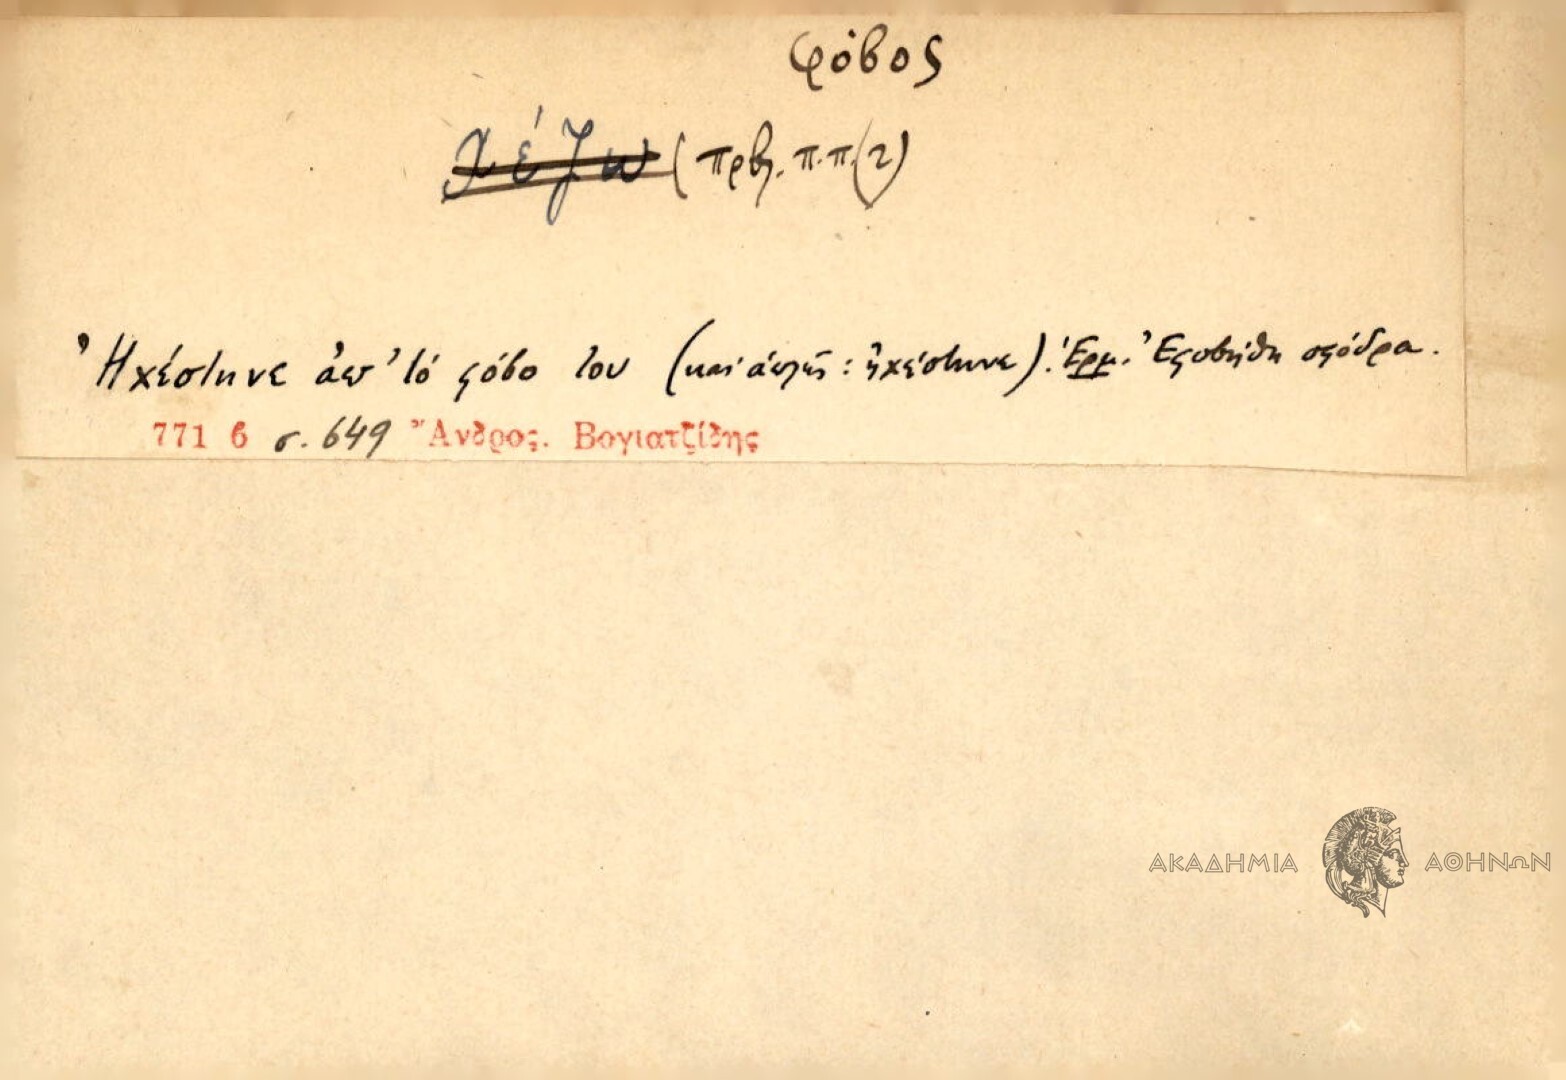 φόβος
χέζω (πρβλ. π.π. (2)
Ἠχέστηνε ἀπ' τὸ φόβο του (καὶ ἁπλῶς: ἠχέστηνε). Ἑρμ. Ἐφοβήθη σφόδρα.
771 6 σ. 649 Ἄνδρος. Βογιατζίδης
ΑΚΑΔΗΜΙΑ ΑΘΗΝΩΝ